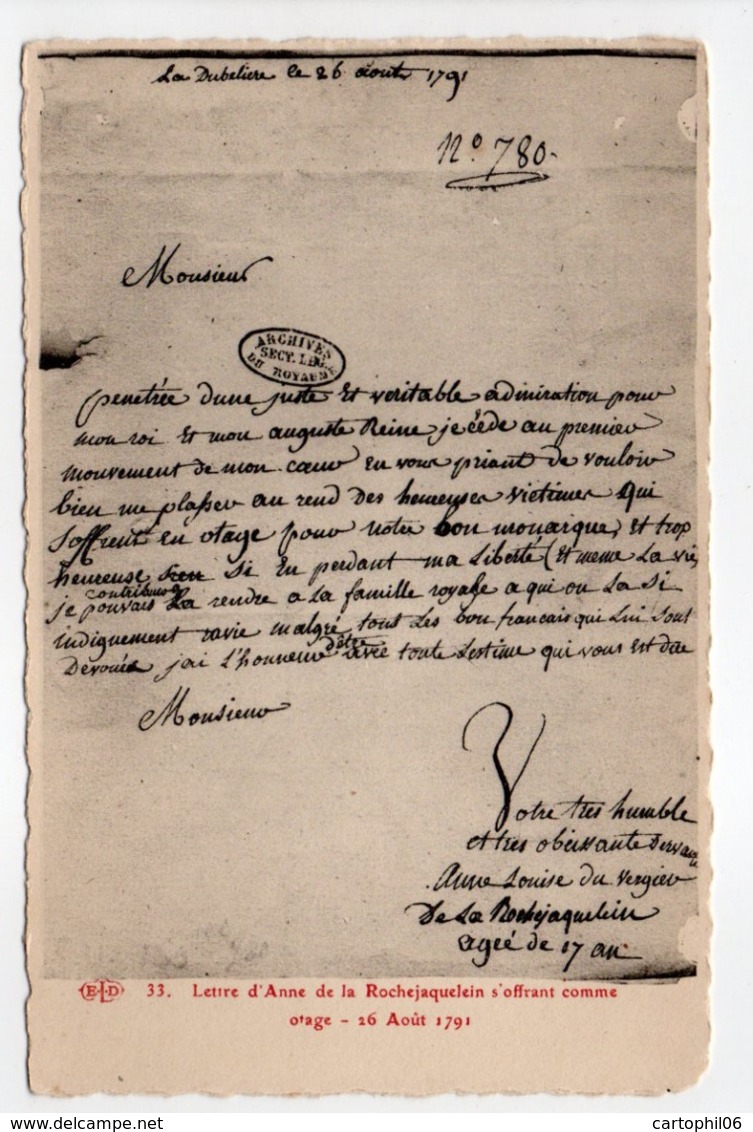 La Dubeliere le 26 aout 1791
No. 780.
Monsieur
ARCHIVES
SECT. LEG.
DU ROYAUME
penetrée dune juste Et veritable admiration pour
mon roi Et mon auguste Reine je cède au premier
mouvement de mon cœur En vous priant de vouloir
bien me plasser au rend des heureuses victimes qui
soffrent en otage pour notre bon monarque, Et trop
heureuse si En perdant ma Liberté (Et meme La vie
contribuer
je pouvais La rendre a La famille royale a qui on La si
indignement ravie malgré tout Les bon francais qui Lui sont
d'être
Devoués jai L'honneur avec toute Lestime qui vous Est due
Monsieur
Votre tres humble
et tres obeissante Servante
Anne Louise du Vergier
De La Rochejaquelein
ageé de 17 an
ELD 33. Lettre d'Anne de la Rochejaquelein s'offrant comme
otage - 26 Août 1791
cartophil06